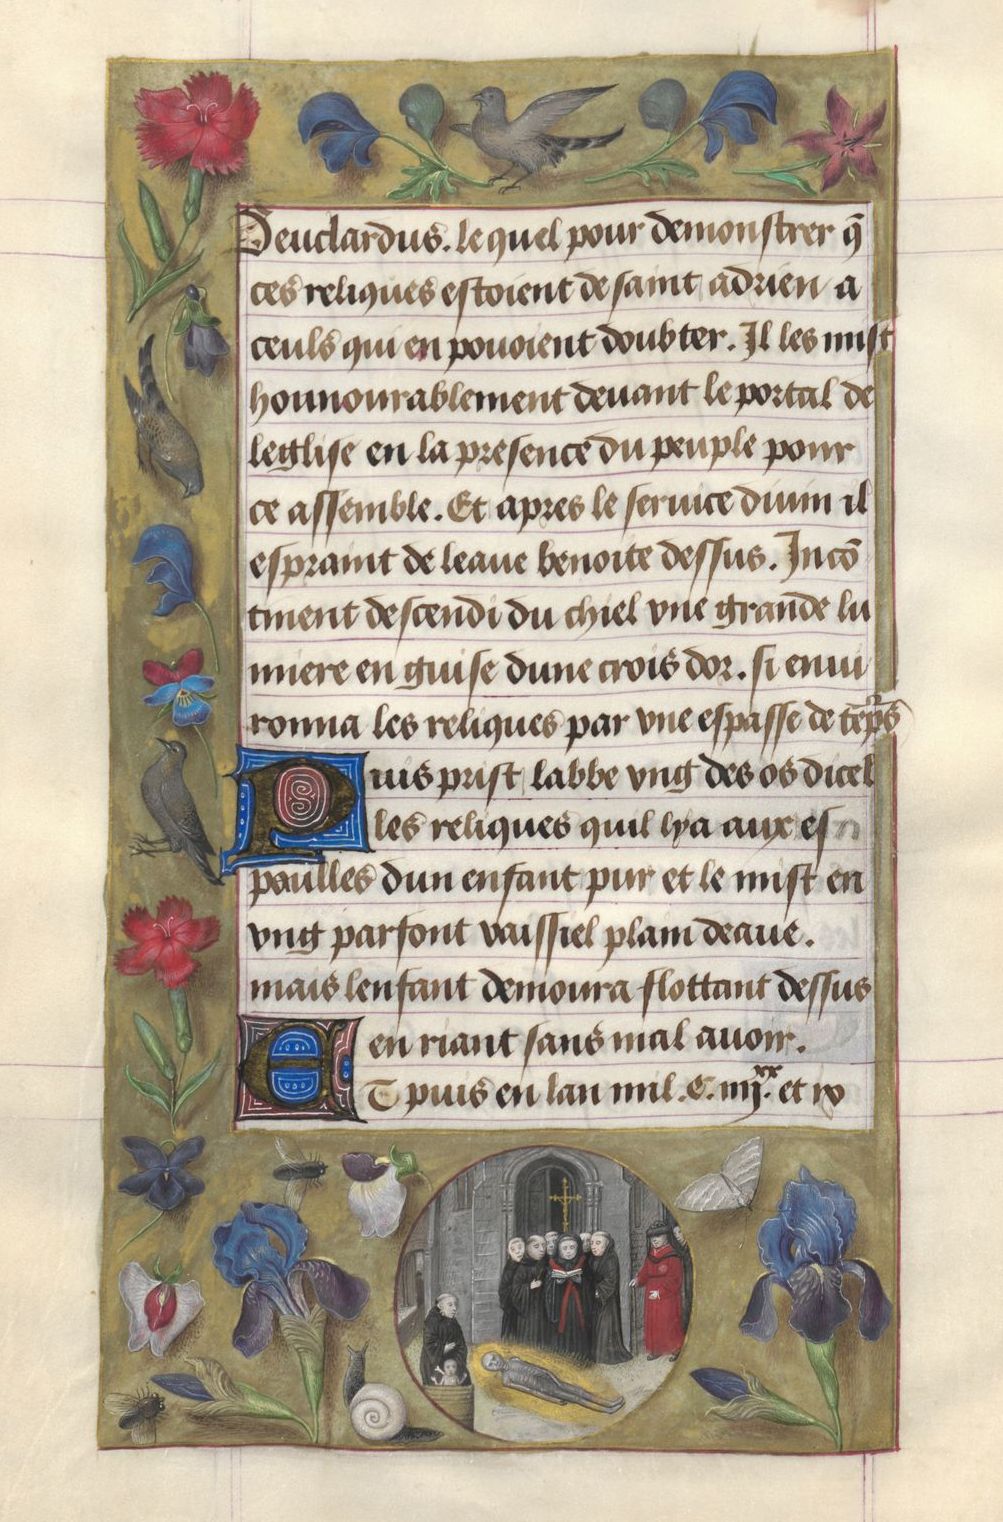 Deuclardus. le quel pour demonstrer q̄
ces reliques estoient de saint adrien a
ceuls qui en pouoient doubter. Il les mist
hounourablement deuant le portal de
leglise en la presence du peuple pour
ce assemble. Et apres le seruice diuin il
espraint de leaue benoite dessus. Incō
tinent descendi du chiel vne grande lu
miere en guise dune crois dor. si enui
ronna les reliques par vne espasse de tēps
Puis prist labbe vng des os dicel
les reliques quil lya aux es
paulles dun enfant pur et le mist en
vng parfont vaissiel plain deaue.
mais lenfant demoura flottant dessus
en riant sans mal auoir.
ET puis en lan mil .C. iiij.xx et ix